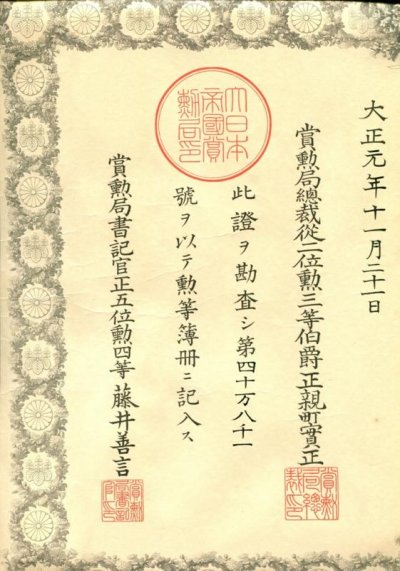 大正元年十一月二十一日
賞勲局總裁從二位勲三等伯爵正親町實正
此證ヲ勘査シ第四十万八千一
號ヲ以テ勲等簿册ニ記入ス
賞勲局書記官正五位勲四等藤井善言
大日本
帝國賞
勲局印
賞勲
局總
裁印